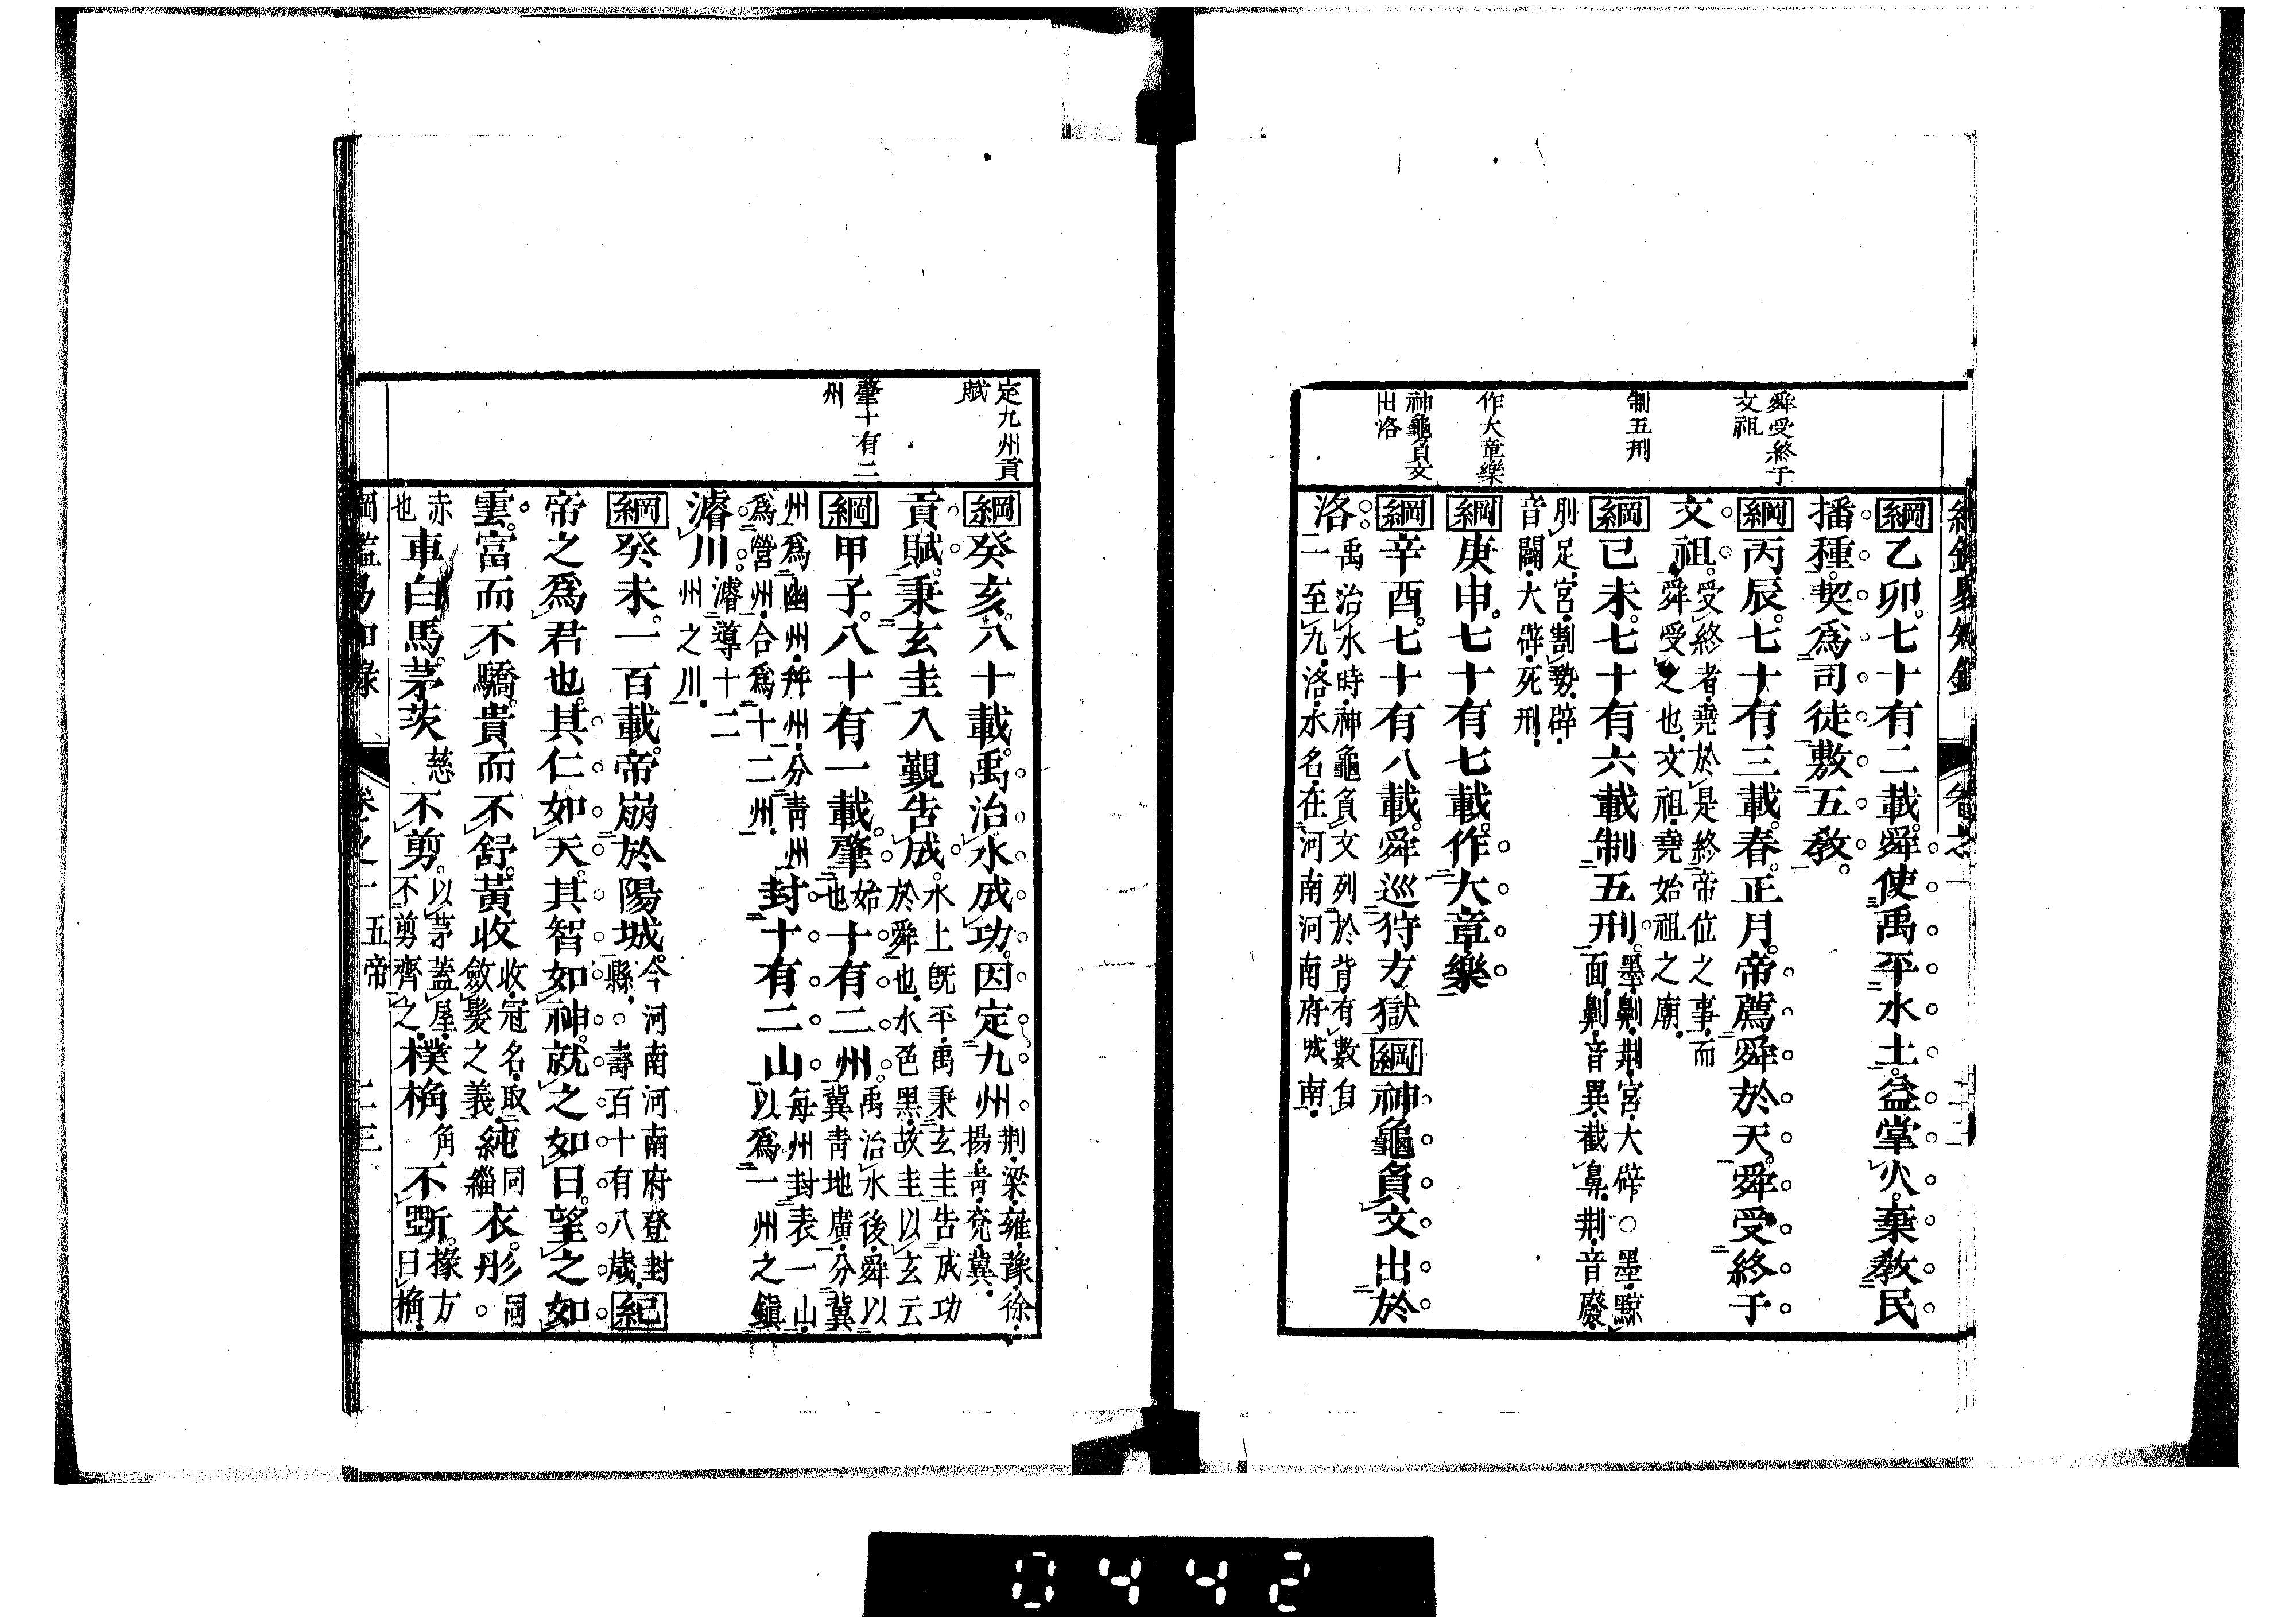 舜受終于
文祖
制五刑
作大章樂
神龜負文
出洛
綱乙卯。七十有二載。舜使禹平水土。益掌火。棄教民
播種。契爲司徒敷五教。
綱丙辰。七十有三載。春。正月。帝薦舜於天。舜受終于
文祖。
受終者。堯於是終帝位之事。而
舜受之也。文祖。堯始祖之廟。
綱己未。七十有六載制五刑。
墨。劓。剕。宮。大辟○墨。黥
面。劓。音異。截鼻。剕。音廢。
刖足。宮。割勢。辟。
音闢。大辟。死刑。
綱庚申。七十有七載。作大章樂
綱辛酉。七十有八載。舜巡狩方獄綱神龜負文出於
洛。
禹治水時。神龜負文列於背。有數自
一至九。洛。水名。在河南河南府城南。
定九州貢
賦
肇十有二
州
綱癸亥。八十載。禹治水成功。因定九州
荆。梁。雍。豫。徐。
揚。青。兗。冀。
貢賦。秉玄圭入覲告成。
水上既平。禹秉玄圭告成功
於舜也。水色黑。故圭以玄云
綱甲子。八十有一載。肇
始
也
十有二州。
禹治水後。舜以
冀青地廣。分冀
州爲幽州。幷州。分青州
爲營州。合爲十二州。
封十有二山
每州封表一山。
以爲一州之鎭
濬川。
濬導十二
州之川。
綱癸未。一百載。帝崩於陽城。
今河南河南府登封
縣。○壽百十有八歲。
紀
帝之爲君也。其仁如天。其智如神。就之如日。望之如
雲。富而不驕。貴而不舒。黃收
收。冠名。取
斂髮之義。
純
同
緇
衣。彤
同
丹。
赤
也
車白馬。茅茨
慈
不剪。
以茅蓋屋。
不剪齊之。
樸桷
角
不斲。
椽方
曰桷。
卷之一 五帝